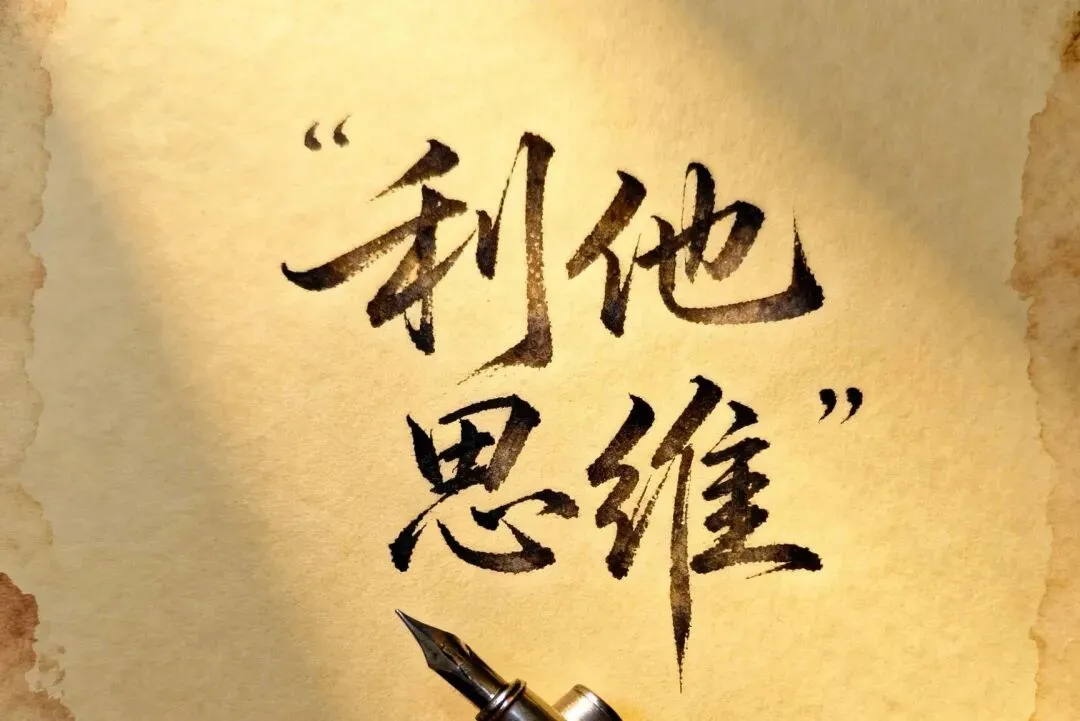 “利他
思维”